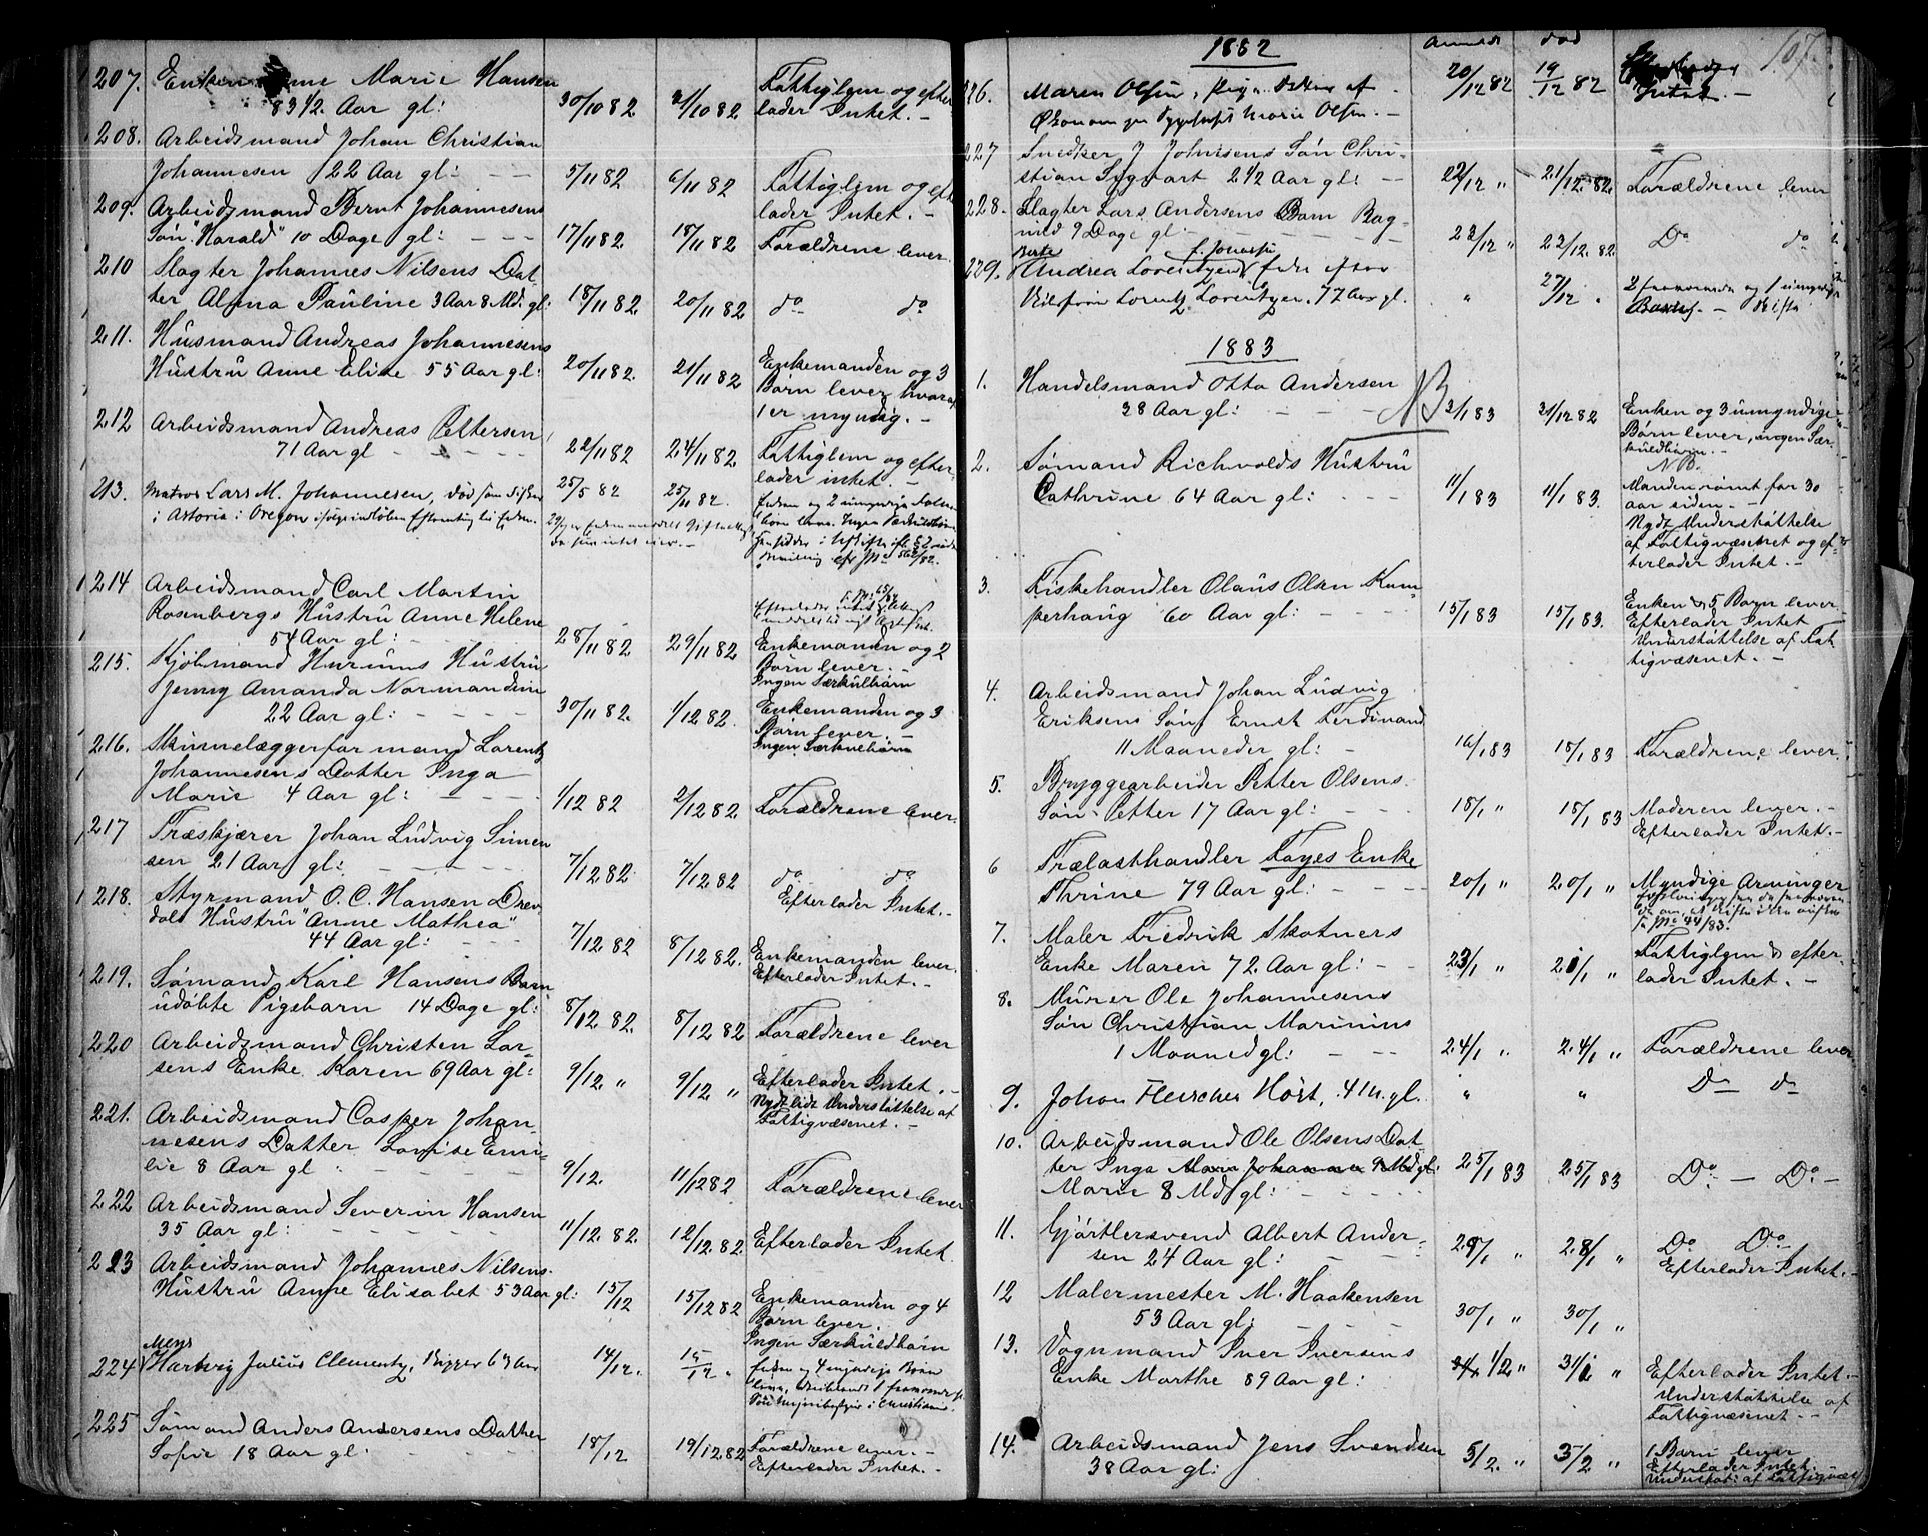 207. Enken Anne Marie Hansen
83 1/2 Aar gl: 30/10 82 31/10 82 Fattiglem og efter
lader Intet. -
208. Arbeidsmand Johan Christian
Johannesen 22 Aar gl: - - 5/11 82 6/11 82 Fattiglem og eft
lader Intet. -
209. Arbeidsmand Bernt Johannesens
Søn "Harald" 10 Dage gl: - - - 17/11 82 18/11 82 Forældrene lever
210 Slagter Johannes Nilsens Dat
ter Alma Pauline 3 Aar 8 Md. gl: 18/11 82. 20/11 82 do do
211. Husmand Andreas Johannesens
Hustru Anne Elise 55 Aar gl: 20/11 82. 21/11 82 Enkemanden og 3
Børn lever hvoraf
1 er myndig. -
212 Arbeidsmand Andreas Pettersen
71 Aar gl - - - - 22/11 82 24/11 82 Fattiglem og efter-
lader intet. -
213. Matros Lars M. Johannesen, død som Fisker
i Astoria i Oregon 25/5 82 25/11 82. Enken og 2 umyndige
214 Arbeidsmand Carl Martin
Rosenbergs Hustru Anne Helene
54 Aar gl: - - 28/11 82 29/11 82 Enkemanden og 2
Børn lever. -
Ingen Særkulbørn
215. Kjøbmand Hurums Hustru
Jenny Amanda Normandine
22 Aar gl: - - - - 30/11 82. 1/12 82. Enkemanden og 3
Børn lever. -
Ingen Særkulbørn
216. Skinnelæggerformand Lorentz
Johannesens Datter Inga
Marie 4 Aar gl: - - - 1/12 82 2/12 82. Forældrene lever.
217 Træskjærer Johan Ludvig Simen
sen 21 Aar gl: - - - - 7/12 82 7/12 82 do do
Efterlader Intet. -
218. Styrmand O. C. Hansen Drev
dals Hustru "Anne Mathea"
44 Aar gl: - - - 7/12 82 8/12 82. Enkemanden lever.
Efterlader Intet. -
219. Sømand Karl Hansens Barn
udøbte Pigebarn 14 Dage gl: 8/12. 82. 8/12 82 Forældrene lever
220 Arbeidsmand Christen Lar-
sens Enke Karen 69 Aar gl: 9/12 " 9/12 " Efterlader Intet. -
Nydt lidt Understøttelse af
Fattigvæsenet. -
221. Arbeidsmand Casper Johan-
nesens Datter Lovise Emi-
lie 8 Aar gl - - - - 9/12. 11/12 82 Forældrene lever
222 Arbeidsmand Severin Hansen
35 Aar gl: - - - 11/12. 82. 12/12. 82. Efterlader Intet.
223 Arbeidsmand Johannes Nilsens
Hustru Anne Elisabet 53 Aar gl: 15/12 15/12 82 Enkemanden og 4
Børn lever.
Ingen Særkuldbørn
Mens
224 Hartvig Julius Clementz, Rigger 67 Aar 14/12. 15/12 " Enken og 4 myndige Børn
225 Sømand Anders Andersens Datter
Sofie 18 Aar gl: - - - - 18/12 19/12. 82 Forældrene lever. -
Efterlader Intet. -
1882 Anmeldt død 107.
226. Maren Olsen, Pige, Datter af 20/12 82 19/12 82 Intet. -
Marie Olsen. -
227 Snedker J Johnsens Søn Chri-
stian Sigvart 2 1/2 Aar gl: - 22/12 " 21/12. 82. Forældrene lever
228. Slagter Lars Andersens Barn Rag-
nild 9 Dage gl - - - - 23/12 " 22/12. 82. Do do
Berte
229. Andrea Lorentzen
Lorentz Lorentzen. 77 Aar gl. " 27/12 " 2 fraværende og 1 umyndig
1883
1. Handelsmand Otto Andersen
28 Aar gl: - - - NB 2/1 83 31/12 82 Enken og 3 umyndige
Børn lever, ingen Sær-
kuldbørn. -
N B.
2. Sømand Richvolds Hustru
Cathrine 64 Aar gl: - - - 11/1 83 11/1 83. Manden rømt for 30
aar siden. -
Nydt Understøttelse
af Fattigvæsenet og ef-
terlader Intet. -
3. Fiskehandler Olaus Olsen Kam-
perhaug 60 Aar gl: - - 15/1 83 15/1 83. Enken & 5 Børn lever.
Efterlader Intet
Understøttelse af Fat-
tigvæsenet. -
4. Arbeidsmand Johan Ludvig
Eriksens Søn Ernst Ferdinand
11 Maaneder gl: - 16/1 83 15/1 83 Forældrene lever.
5. Bryggearbeider Petter Olsens
Søn Petter 17 Aar gl: - - 18/1 " 18/1 83 Moderen lever. -
Efterlader Intet. -
6 Trælasthandler Foyes Enke
Thrine 79 Aar gl: - - - 20/1 " 20/1 " Myndige Arvinger
7. Maler Fredrik Skotners
Enke Maren 72. Aar gl: - - 23/1 " 21/1 " Fattiglem & efter-
lader Intet. -
8. Murer Ole Johannesens
Søn Christian Marinius
1 Maaned gl: - - - 24/1 " 24/1 " Forældrene lever
9. Johan Fleischer Høst, 4 M. gl. " " Do do
10. Arbeidsmand Ole Olsens Dat
ter Inga Maria Johanna 9 Md gl: 25/1 83 25/1 83 Do - Do -
Marie 8 Md. gl: - - - -
11. Gjørtlersvend Albert Ander-
sen 24 Aar gl: - - - 29/1 " 28/1 " Do Do
Efterlader Intet. -
12 Malermester M. Haakensen
53 Aar gl: - - - - 30/1 " 30/1 "
13. Vognmand Iver Iversens
Enke Marthe 89 Aar gl: 1/2 " 31/1 " Efterlader Intet. -
Understøttelse af
Fattigvæsenet. -
14. Arbeidsmand Jens Svendsen
38 Aar gl: 5/2. " 3/2 " 1 Barn lever
Efterlader Intet.
Understøt: af Fattigvæs